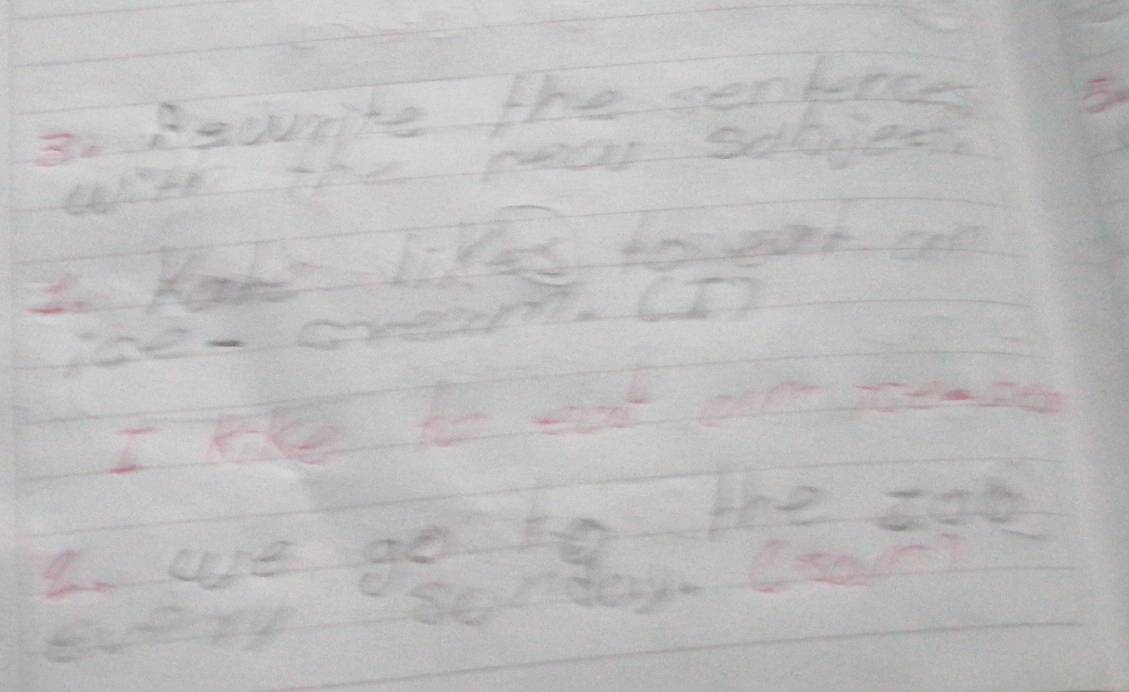 3. Rewrite the sentences
with the new subject.
1. Kate likes to eat an
ice-cream. (I)
I like to eat an ice-cream
2. we go to the zoo
every sunday. (Sam)
5.